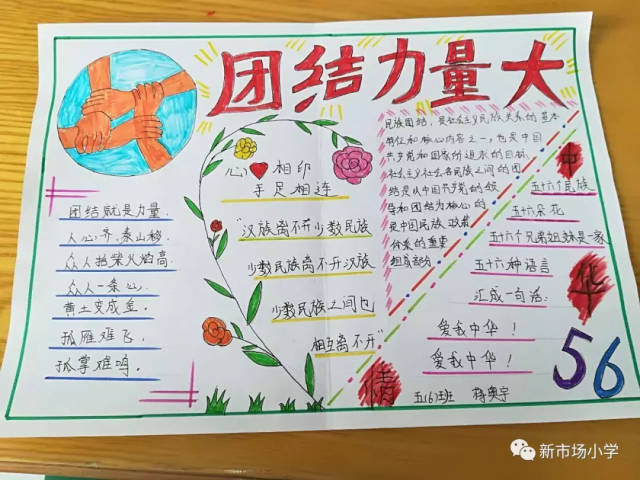 团结力量大
团结就是力量
人心齐,泰山移.
众人拾柴火焰高.
众人一条心.
黄土变成金.
孤雁难飞,
孤掌难鸣.
心相印
手足相连
"汉族离不开少数民族
少数民族离不开汉族
少数民族之间也
相互离不开"
民族团结,是社会主义民族关系的基本
特征和核心内容之一,也是中国
共产党和国家所追求的目标
社会主义社会各民族之间的团
结是从中国共产党的领
导和团结为核心的
是中国民族政策
的重要
组成部分
中
华
情
五十六个民族
五十六朵花
五十六个兄弟姐妹是一家
五十六种语言
汇成一句话:
爱我中华!
爱我中华!
56
五(6)班
新市场小学